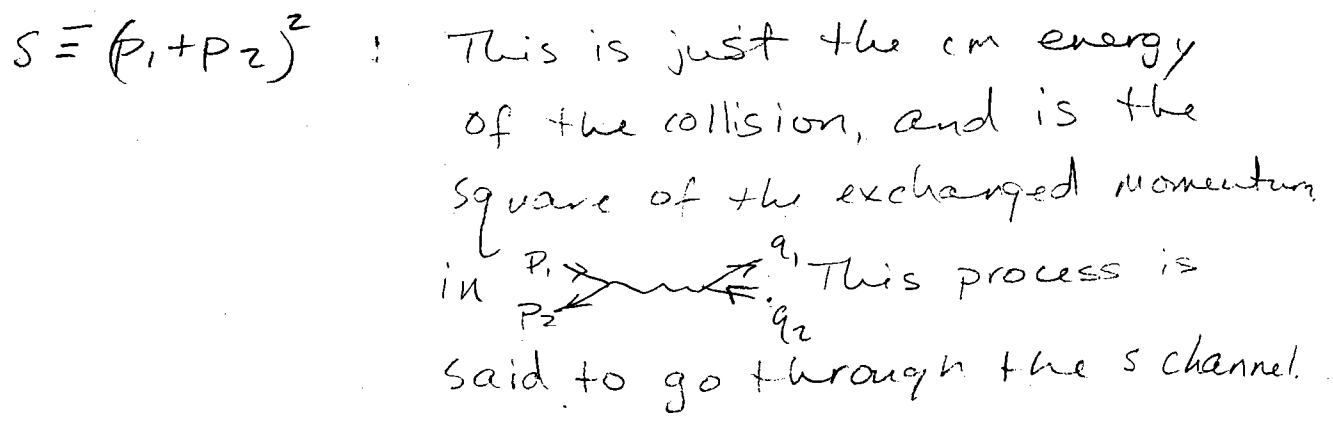 S ≡ (p₁+p₂)² : This is just the cm energy
of the collision, and is the
square of the exchanged momentum
in p₁ p₂ q₁ q₂ This process is
said to go through the s channel.